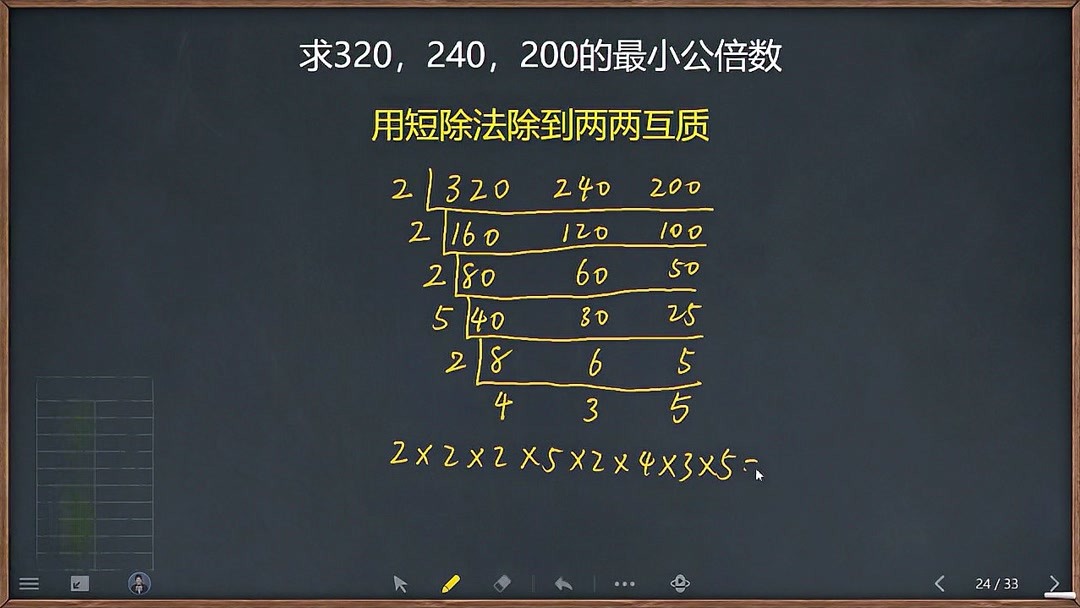 求320，240，200的最小公倍数
用短除法除到两两互质
2 320 240 200
2 160 120 100
2 80 60 50
5 40 30 25
2 8 6 5
4 3 5
2×2×2×5×2×4×3×5=
24 / 33